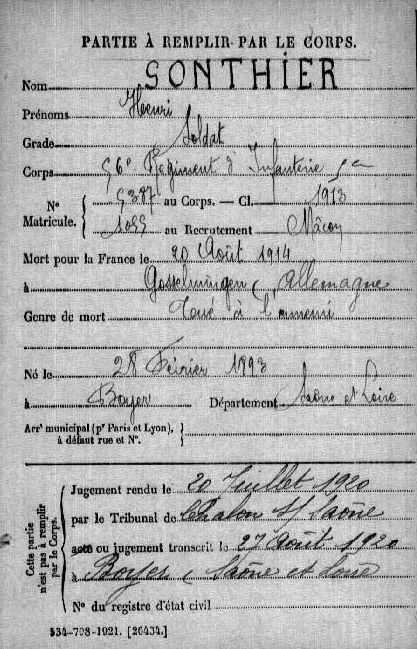 PARTIE À REMPLIR PAR LE CORPS.
Nom SONTHIER
Prénoms Henri
Grade Soldat
Corps 56e Régiment d'Infanterie
N° 5387 au Corps. — Cl. 1913
Matricule. 1055 au Recrutement Mâcon
Mort pour la France le 20 Août 1914
à Gosselmingen (Allemagne
Genre de mort Tué à l'ennemi
Né le 28 Février 1893
à Boyer Département Saône et Loire
Arrt municipal (pr Paris et Lyon),
à défaut rue et N°.
Cette partie
n'est pas à remplir
par le Corps.
Jugement rendu le 20 Juillet 1920
par le Tribunal de Chalon S/ Saône
acte ou jugement transcrit le 27 Août 1920
à Boyer (Saône et Loire
N° du registre d'état civil
534-708-1921. [26434.]